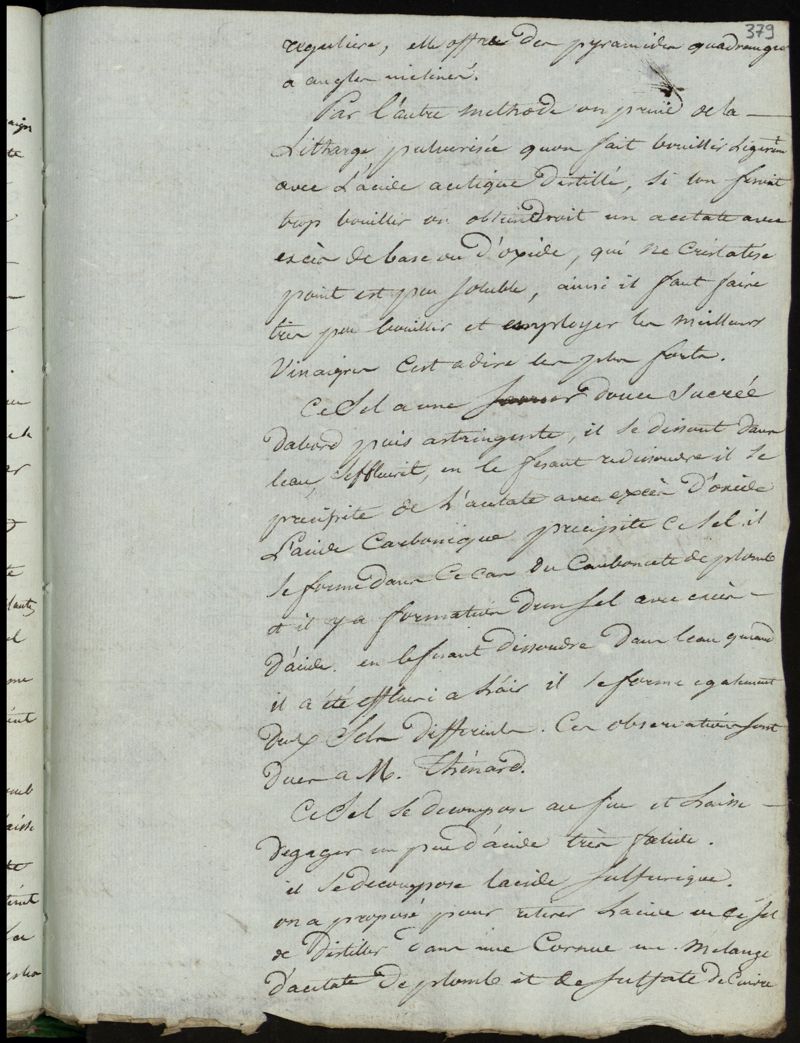 379
reguliere, elle offre des pyramides quadrangre
a angles inclinés.
Par l'autre methode on prend de la
Litharge pulverisée qu'on fait bouillir Legèremt
avec L'acide acetique Distillé, si lon fesoit
trop bouillir on obtiendroit un acetate avec
excès de base ou D'oxide, qui ne Cristalise
point est peu soluble, ainsi il faut faire
tres peu bouillir et employer les meilleurs
Vinaigres Cest a dire les plus forts.
Ce Sel a une saveur douce Sucrée
Dabord puis astringente, il se dissout dans
leau, s'effleurit, en le fesant redissoudre il se
precipite de L'acetate avec excès D'oxide
L'acide Carbonique precipite Ce Sel. il
se forme dans Ce cas du Carbonate de plomb
et il y a formation d'un sel avec excès
D'acide. en le fesant dissoudre Dans leau quand
il a été effleuri a L'air il se forme egalement
Deux Sels Differents. Ces observations sont
Dues a M. Thénard.
Ce Sel se decompose au feu et Laisse
Degager un peu d'acide très fetide.
il se decompose lacide sulfurique.
on a proposé pour retirer Lacide de Ce Sel
de Distiller dans une Cornue un mélange
D'acetate De plomb et de sulfate de Cuivre